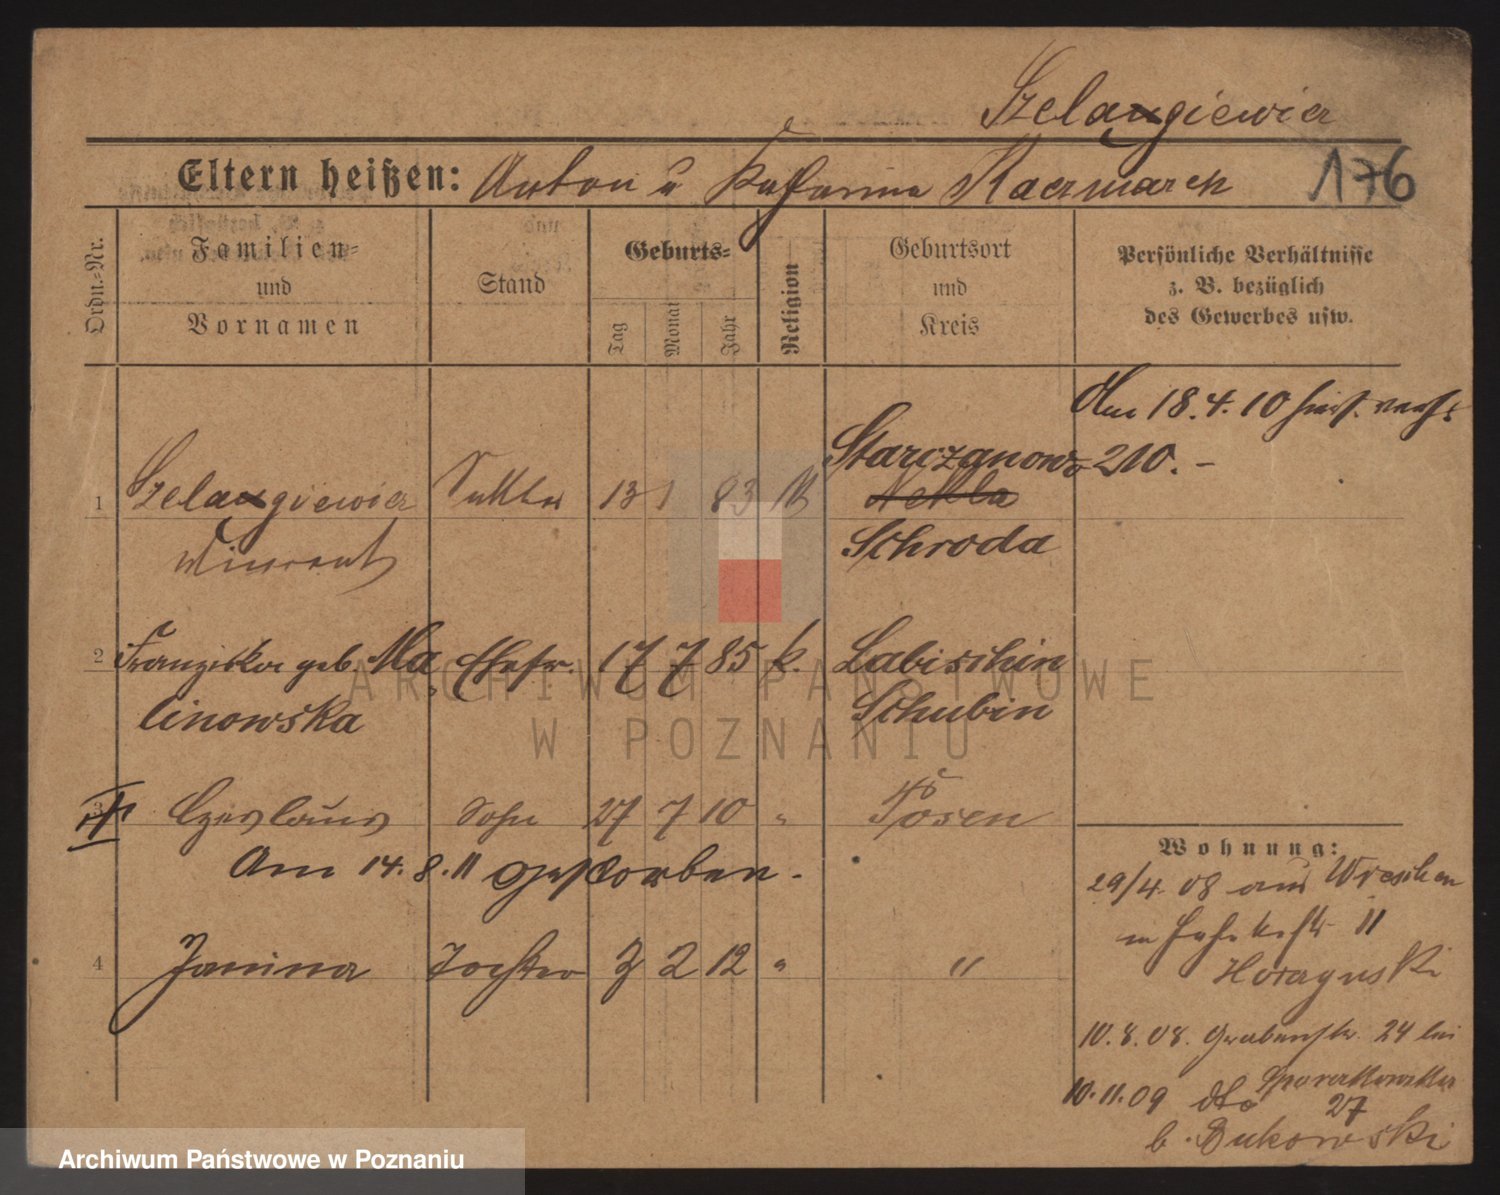 Szelangiewicz
Eltern heißen: Anton u Katharina Kaczmarek 176
Ordn.-Nr.
Familien-
und
Vornamen
Stand
Geburts-
Tag
Monat
Jahr
Religion
Geburtsort
und
Kreis
Persönliche Verhältnisse
z. B. bezüglich
des Gewerbes usw.
Am 18.4.10
210.-
1 Szelangiewicz Sattler 13 1 83 K Starczanowo
Nekla
Wincent Schroda
2 Franziska geb. Ma Ehefr. 17 7 85 k. Labischin
linowska Schubin
3 Czeslaus Sohn 27 7 10 " Posen
Am 14.8.11 gestorben.
4 Janina Tochter 3 2 12 " "
Wohnung:
29/4. 08 aus Wreschen
11
10.8.08. Grabenstr. 24 bei
10.11.09 dto 27
b. Bukowski
ARCHIWUM PAŃSTWOWE
W POZNANIU
Archiwum Państwowe w Poznaniu